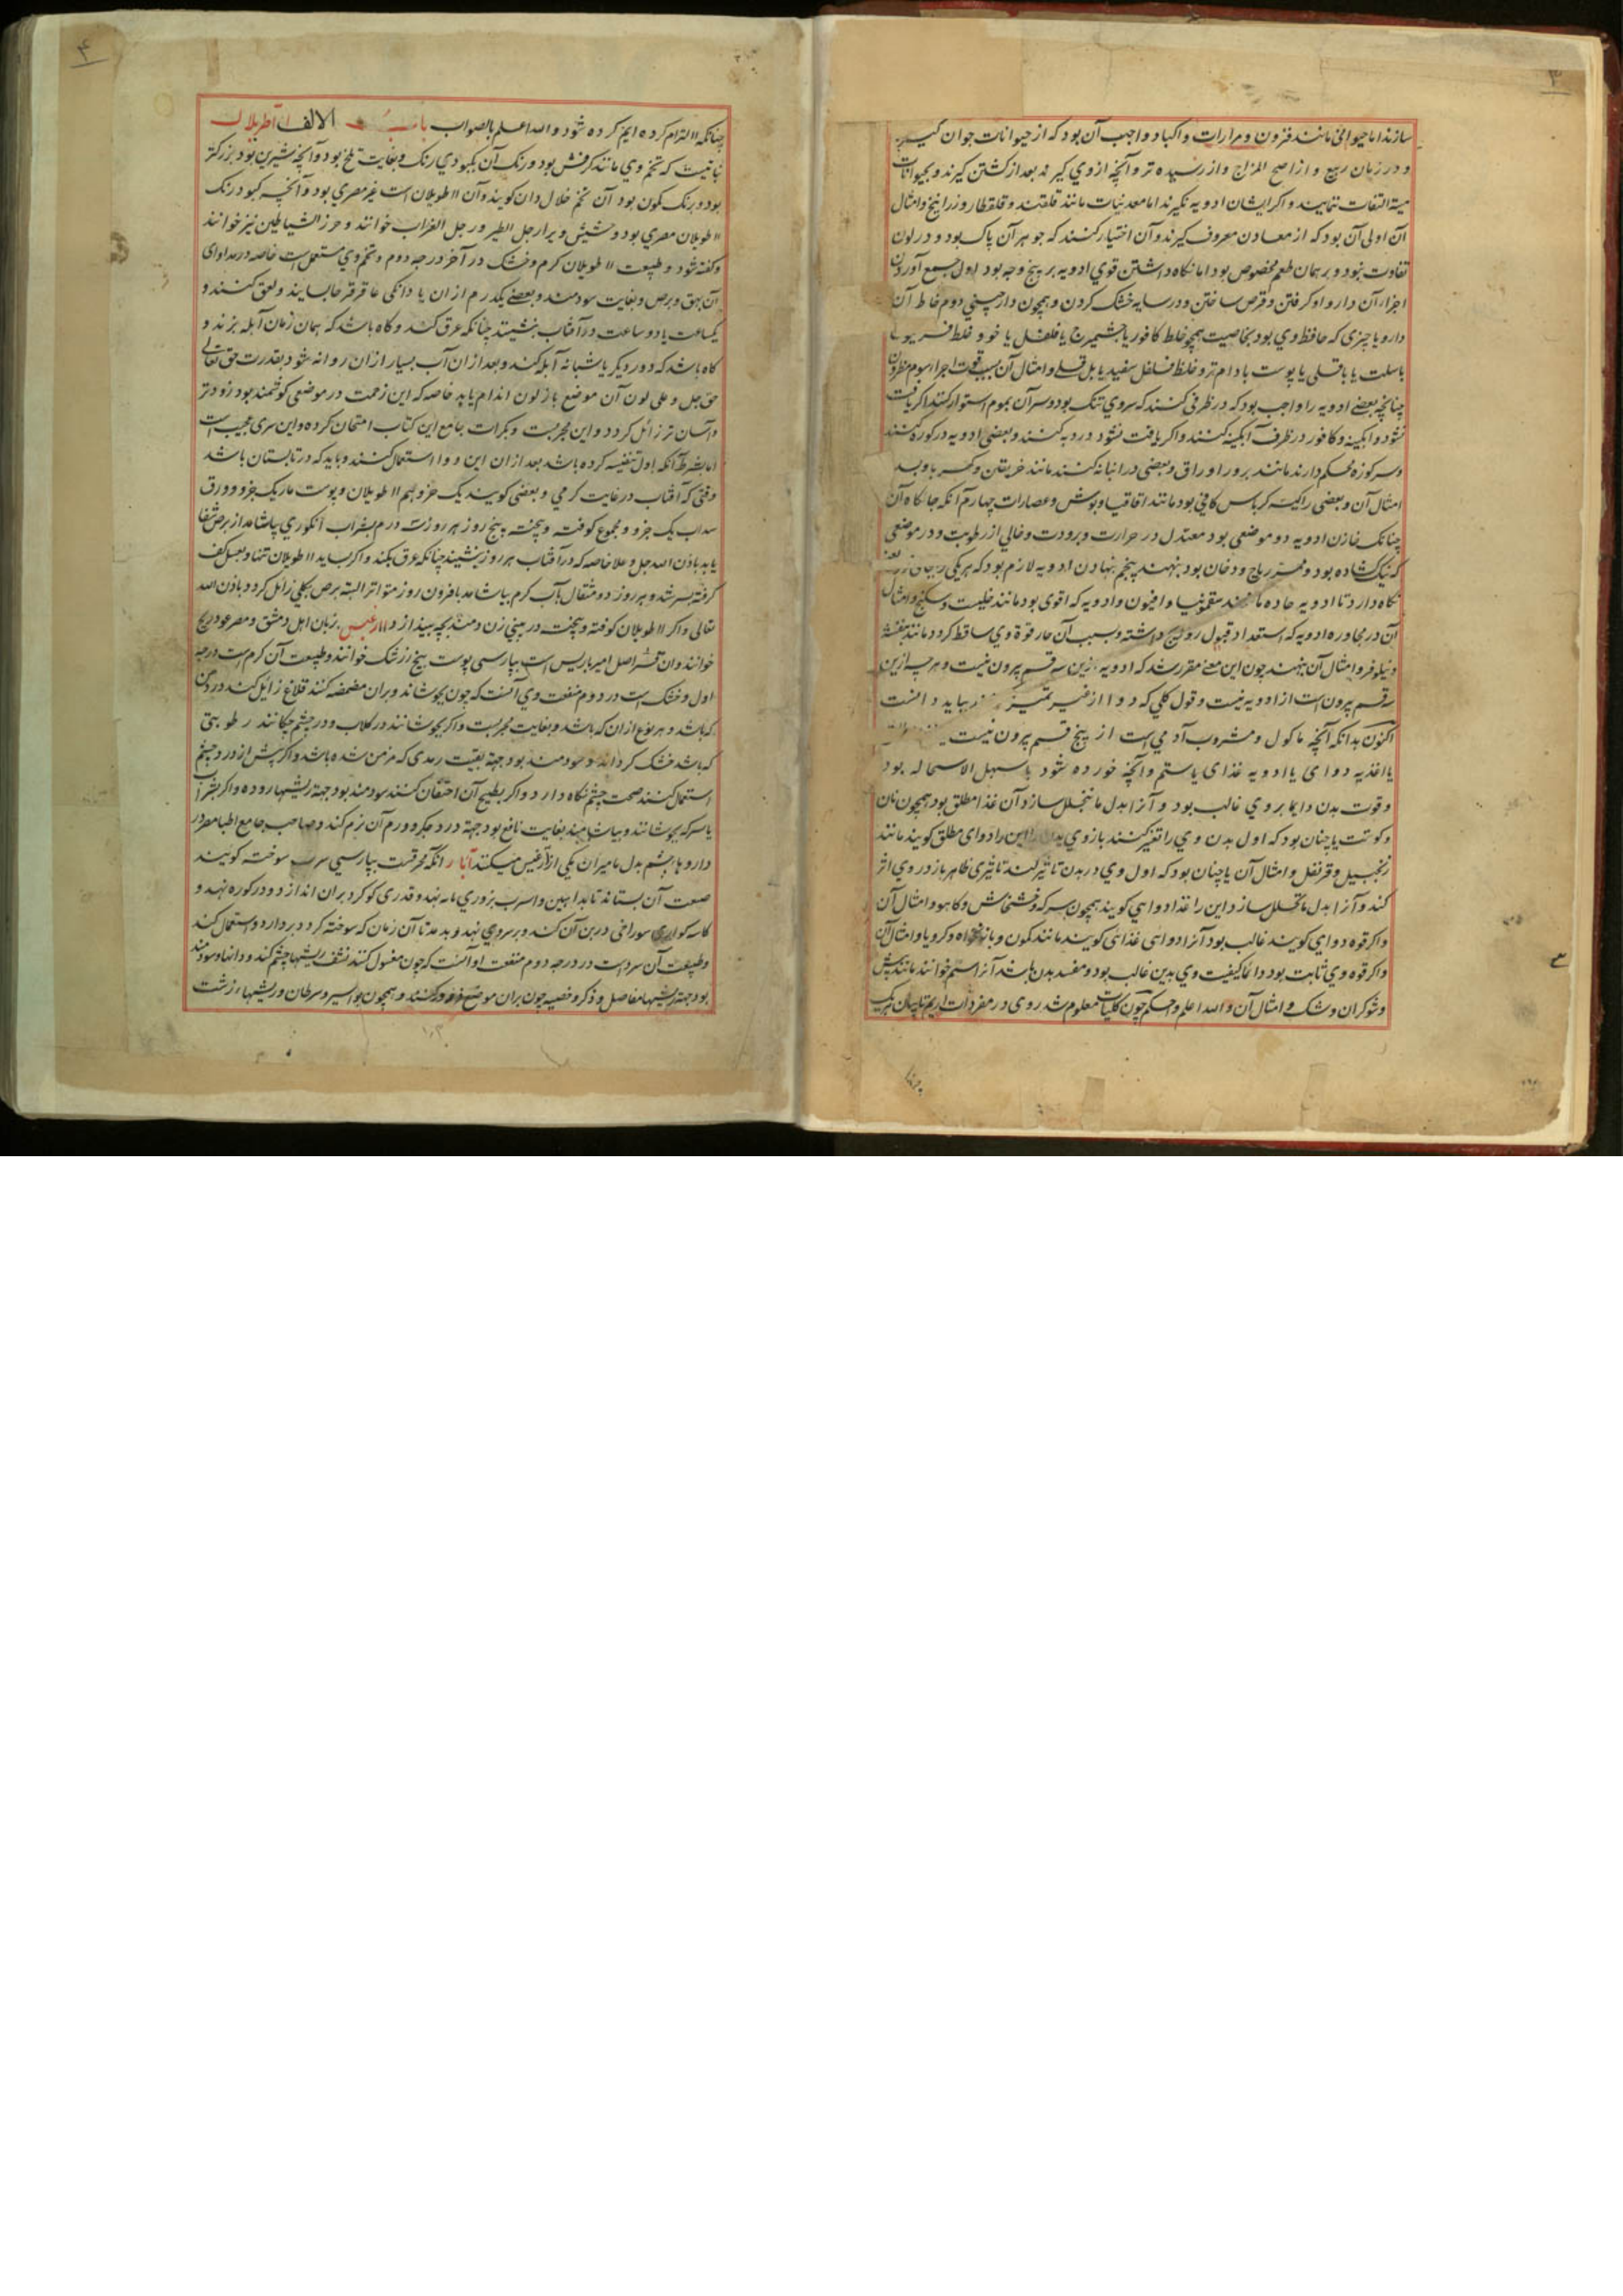 سازند اما حیوانی مانند قرون و مرارات و اکباد واجب آن بود که از حیوانات جوان گیرند
و در زمان ربیع و از اصح المزاج و از رسیده تر و آنچه از وی گیرند بعد از کشتن گیرند و بحیوانات
میته التفات ننمایند و اکر ایشان ادویه نکیرند اما معدنیات مانند قلقند و قلقطار و زرانیخ و امثال
آن اولی آن بود که از معادن معروف گیرند و آن اختیار کنند که جوهر آن پاک بود و در لون
تفاوت نبود و بر همان طعم مخصوص بود اما نکاه داشتن قوی ادویه بر پنج وجه بود اول جمع آوردن
اجزاء آن دارو او کرفتن و قرص ساختن و در سایه خشک کردن و همچون دارچینی دوم خلط آن
دارو با چیزی که حافظ وی بود بخاصیت همچو خلط کافور با فلفل یا جو و خلط فربیون
با سلت یا باقلی یا پوست بادام تر و خلط فلفل سفید
چنانچه بعضی ادویه را واجب بود که در ظرفی کنند که سر وی تنک بود و سر آن بموم استوار کنند اکر یافت
نشود و ابکینه و کافور در ظرف آبکینه کنند و اکر یافت نشود در دبه کنند و بعضی ادویه در کوزه کنند
و سر کوزه محکم دارند مانند بزور و اوراق و بعضی در انبانه کنند مانند خربقین
امثال آن و بعضی را کیسه کرباس کافی بود مانند اقاقیا و بوش و عصارات چهارم آنکه جایکاه آن
چنانک خازن ادویه در موضعی بود معتدل در حرارت و برودت و خالی از رطوبت و در موضعی
که نیک کشاده بود و ممر ریاح و دخان بود بنهند پنجم نهادن ادویه لازم بود که هر یکی
نکاه دارد تا ادویه حاده مانند سقمونیا و افیون و ادویه که اقوی بود مانند حلتیت و سکبینج و امثال
آن در مجاوره ادویه که استعداد قبول روایح داشته و سبب آن حار قوة وی ساقط کردد مانند بنفشه
و نیلوفر و امثال آن بنهند چون این معنی مقرر شد که ادویه ازین سه قسم بیرون نیست و هر چه ازین
سه قسم بیرون است از ادویه نیست و قول کلی که دوا از غیر تمییز
اکنون بدانکه آنچه ماکول و مشروب آدمی است از پنج قسم بیرون نیست
یا اغذیه دوای یا ادویه غذای یا ستم و آنچه خورده شود یا سهل الاستحاله بود
و قوت بدن دایما بر وی غالب بود و آنرا بدل ما یتحلل سازد آن غذا مطلق بود همچون نان
و کوشت یا چنان بود که اول بدن وی را تغیر کنند باز وی بدن را این را دوای مطلق کویند مانند
زنجبیل و قرنفل و امثال آن یا چنان بود که اول وی در بدن تاثیر کند تاثیری ظاهر باز در وی اثر
کند و آنرا بدل ما یتحلل سازد این را غذا دوایی کویند همچون سرکه و خشخاش و کاهو و امثال آن
و اکر قوه دوای کویند غالب بود آنرا دوایی غذائی کویند مانند کمون و نانخواه و کرویا و امثال آن
و اکر قوه وی ثابت بود دائما کیفیت وی بدین غالب بود و مفسد بدن باشد آنرا سم خوانند مانند بیش
و شوکران و شک و امثال آن و الله اعلم و احکم چون کلیات معلوم شد روی در مفردات آریم تا بیان هر یک
چنانکه التزام کرده ایم کرده شود و الله اعلم بالصواب باب الالف اطریلال
نباتیست که تخم وی مانند کرفس بود و رنک آن بکبودی رنک و بغایت تلخ بود و آنچه شیرین بود بزرکتر
بود و برنک کمون بود آن تخم خلال دان کویند و آن اطریلان است غیر مصری بود و آنچه کبود رنک
اطریلان مصری بود و حشیش ویرا رجل الطیر و رجل الغراب خوانند و حرز الشیاطین نیز خوانند
و کفته شود و طبیعت اطریلان کرم و خشک در آخر درجه دوم و تخم وی مستعمل است خاصه در مداوای
آن بهق و برص و بغایت سودمند و بعضی یکدرم از آن با دانکی عاقرقرحا بسایند و لعق کنند و
یکساعت یا دو ساعت در آفتاب بنشیند چنانکه عرق کند و کاه باشد که همان زمان آبله بزند و
کاه باشد که دو روز دیکر یا شبانه آبله کند و بعد از آن آب بسیار از آن روانه شود بقدرت حق تعالی
حق جل و علی لون آن موضع باز لون اندام یابد خاصه که این زحمت در موضعی کوشتمند بود زودتر
و آسان تر زائل کردد و این مجربست و بکرات جامع این کتاب امتحان کرده و این سری عجیب است
اما بشرط آنکه اول تنقیه کرده باشد بعد از آن این دوا استعمال کنند و باید که در تابستان باشد
وقتی که آفتاب در غایت کرمی و بعضی کویند یک جزو تخم اطریلان و پوست مار یک جزو و ورق
سداب یک جزو و مجموع کوفته و بیخته پنج روز هر روز سه درم بشراب انکوری بیاشامد از برص شفا
یابد باذن الله جل و علا خاصه که در آفتاب هر روز بنشیند چنانکه عرق بکند و اکر بساید اطریلان تنها و بعسل کف
کرفته بسرشد و هر روز دو مثقال بآب کرم بیاشامد پانزده روز متواتر البته برص بکلی زائل کردد باذن الله
تعالی و اکر اطریلان کوفته و بیخته در بینی زن دمند بچه بیندازد اارغیس زبان اهل دمشق و مصر عود ریح
خوانند و آن قشر اصل امیرباریس است بپارسی پوست بیخ زرشک خوانند و طبیعت آن کرم است درجه
اول و خشک است در دوم منفعت وی آنست که چون بجوشانند و بران مضمضه کنند قلاع زایل کند در دهن
که باشد و هر نوع از آن که باشد و بغایت مجربست و اکر بجوشانند در کلاب و در چشم چکانند رطوبتی
که باشد خشک کرداند و سودمند بود جهة بقیت رمدی که مزمن شده باشد و اکر پیش از درد چشم
استعمال کنند صحت چشم نکاه دارد و اکر بطبیخ آن احتقان کنند سودمند بود جهة ریشهاء روده و اکر بشراب
یا سرکه بجوشانند و بیاشامند بغایت نافع بود جهة درد جکر و ورم آن نرم کند و صاحب جامع اطبا مصر در
داروهاء چشم بدل مامیران یکی ارغیس میکنند آبار آنک محرقست بپارسی سرب سوخته کویند
صعت آن بستاند تابه آهنین و اسرب بزوری مانه نهد و قدری کوکرد بران اندازد و در کوره نهد و
کاسه کواره سوراخی در بن آن کند و بر سر وی نهد و بدمد تا آن زمان که سوخته کردد بردارد و استعمال کند
و طبیعت آن سردست در درجه دوم منفعت او آنست که چون مغسول کنند نشف ریشهاء چشم کند و دانها و سودمند
بود جهة ریشهاء مفاصل و ذکر و خصیه چون بران موضع ذرور کنند و همچون بواسیر و سرطان و ریشهاء زشت